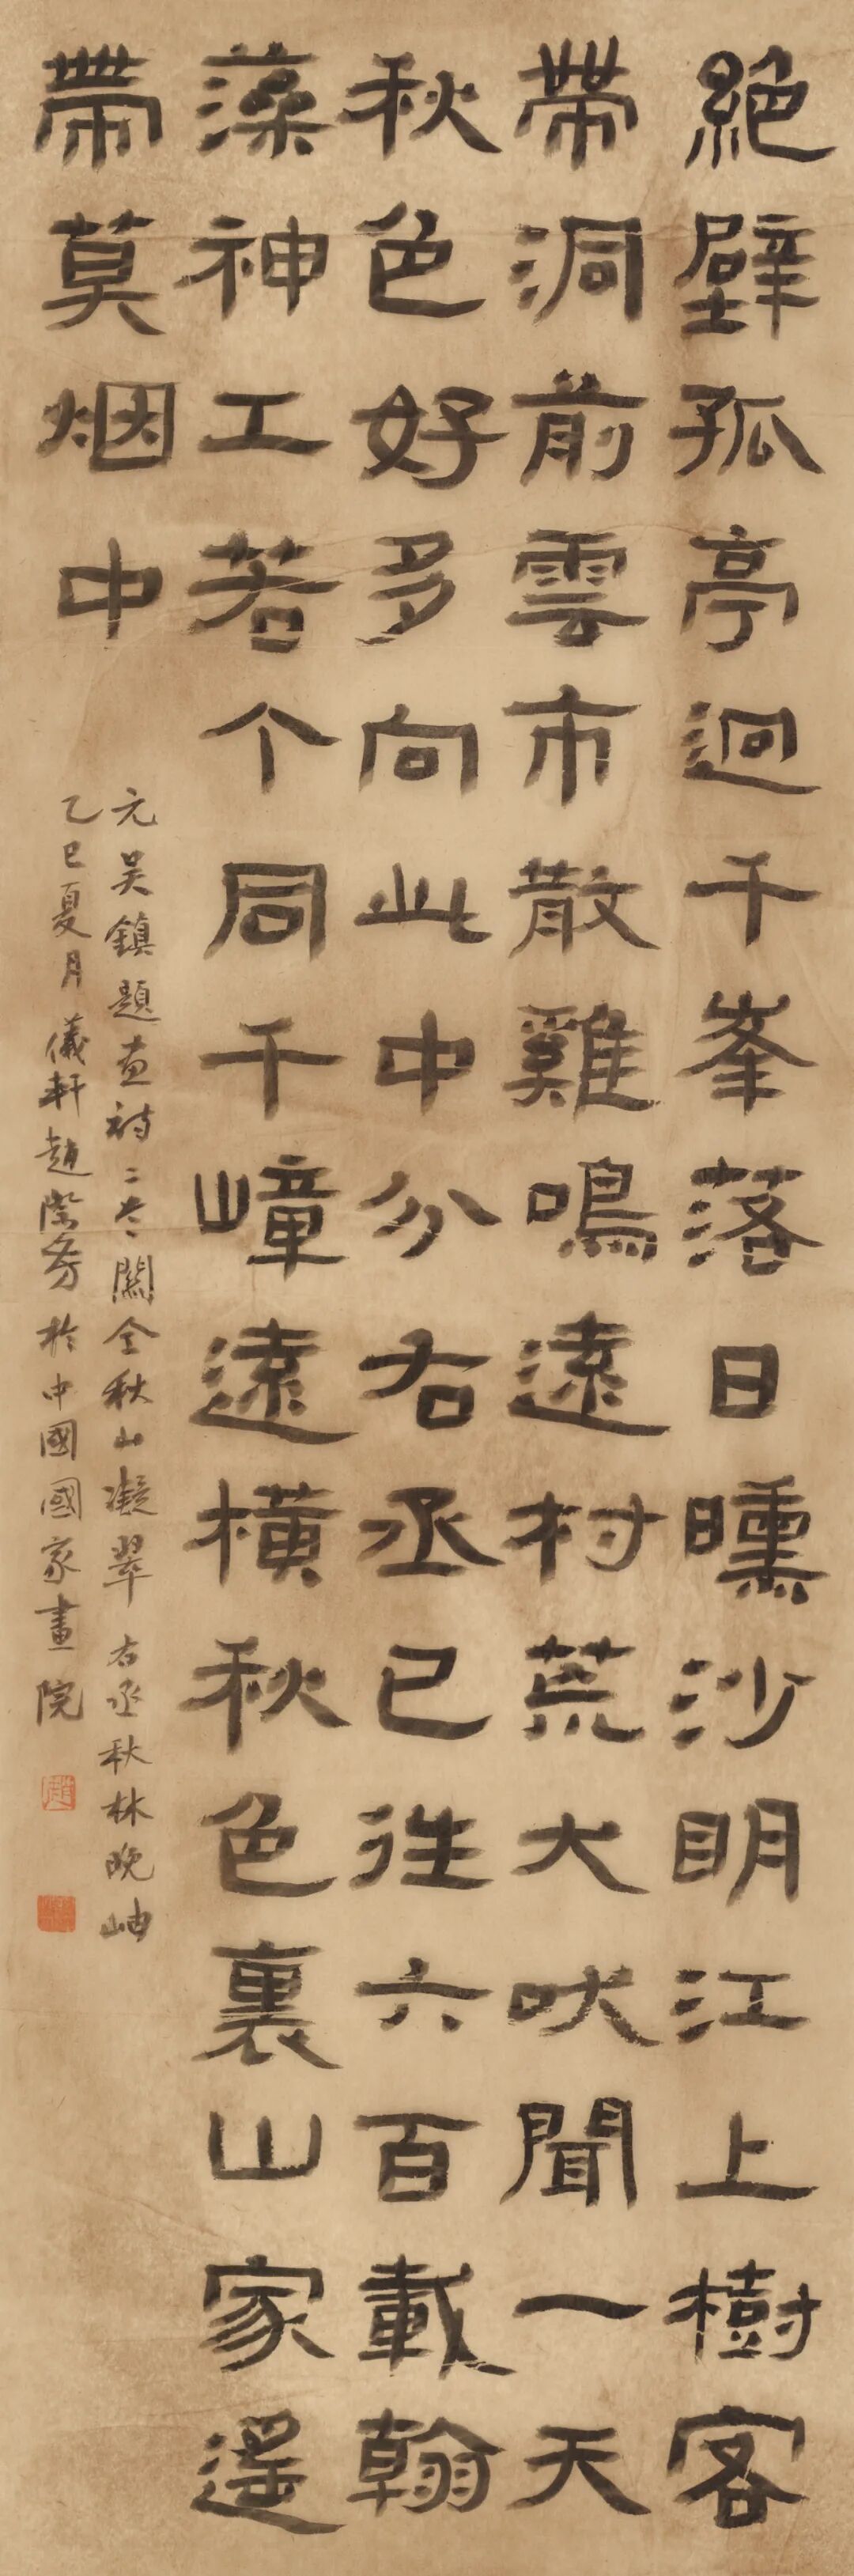 絕壁孤亭迥千峯落日曛沙明江上樹客
帶洞前雲市散雞鳴遠村荒犬吠聞一天
秋色好多向此中分右丞已往六百載翰
藻神工若个同千嶂遠橫秋色裏山家遙
帶莫烟中
元吳鎮題畫詩二首關仝秋山凝翠右丞秋林晚岫
乙巳夏月儀軒趙際芳於中國國家畫院